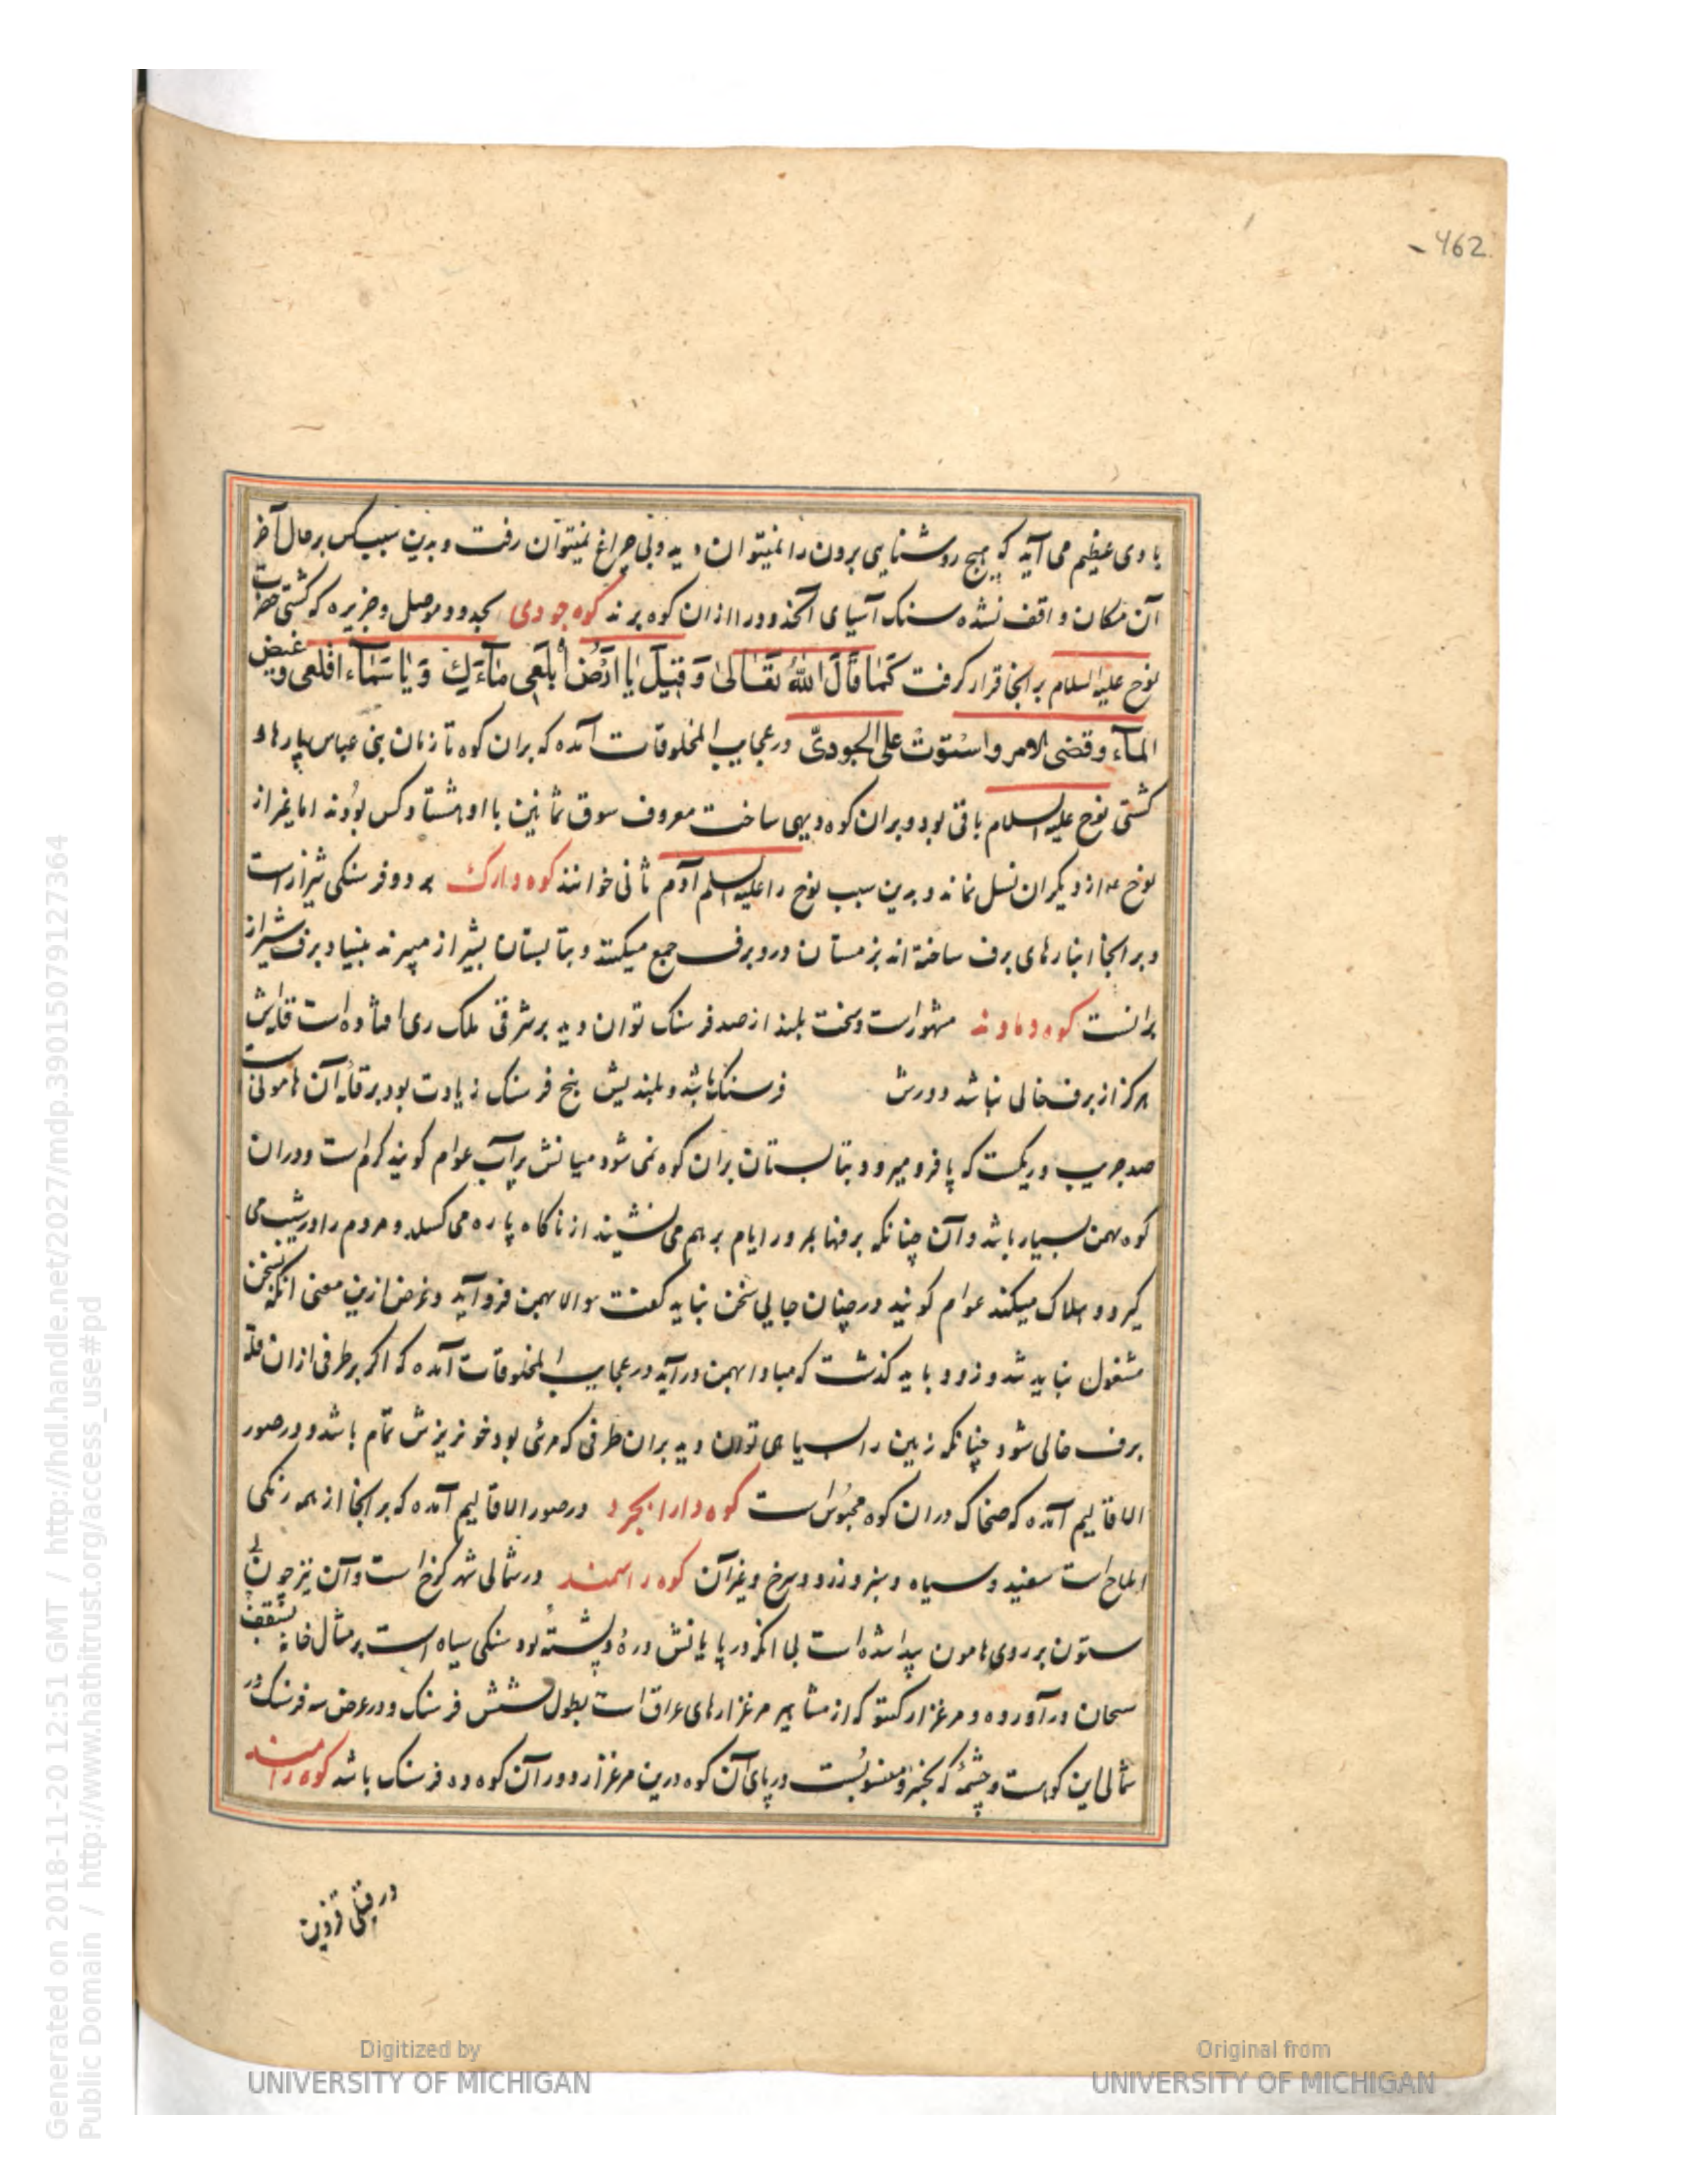 462
بادی عظیم می آید که هیچ روشنایی برون را نمیتوان دید و بی چراغ نمیتوان رفت و بدین سبب کس بر حال آخر
آن مکان واقف نشده سنک آسیای آنحدود را از ان کوه برند کوه جودی بحدود موصل و جزیره که کشتی حضرت
نوح علیه السلام بر انجا قرار کرفت کما قال الله تعالی و قیل یا ارض ابلعی ماءک و یا سماء اقلعی و غیض
الماء و قضی الامر و استوت علی الجودی در عجایب المخلوقات آمده که بران کوه تا زمان بنی عباس پارهاء
کشتی نوح علیه السلام باقی بود و بران کوه دیهی ساخت معروف سوق ثمانین با او هشتاد کس بودند اما بغیر از
نوح ع از دیکران نسل نماند و بدین سبب نوح را علیه السلم آدم ثانی خوانند کوه دارک بر دو فرسنکی شیراز است
و بر انجا انبارهای برف ساخته اند بزمستان درو برف جمع میکنند و بتابستان بشیراز میبرند بنیاد برف شیراز
برانست کوه دماوند مشهور است و سخت بلند از صد فرسنک توان دید بر شرقی ملک ری افتاده است قله اش
هرکز از برف خالی نباشد دورش فرسنک باشد و بلندیش پنج فرسنک زیادت بود بر قله آن هامونی است
صد جریب و ریکست که پا فرو میرود و بتابستان بران کوه نمی شود میانش پر آب عوام کویند کرم است و دران
کوه بهمن بسیار باشد و آن چنانکه برفها بمرور ایام بر هم می نشیند از ناکاه پاره می کسلد و مردم را در شیب می
کیرد و هلاک میکند عوام کویند در چنان جایی سخن نباید کفت والا بهمن فرو آید و غرض ازین معنی انکه بسخن
مشغول نباید شد و زود باید کذشت که مبادا بهمن در آید در عجایب المخلوقات آمده که اکر بر طرفی ازان قله
برف خالی شود چنانکه زمین را سیاهی توان دید بران طرفی که مرئی بود خونریزش تمام باشد و در صور
الاقالیم آمده که ضحاک دران کوه محبوس است کوه دارابجرد در صور الاقالیم آمده که بر انجا از همه رنکی
املاح است سفید و سیاه و سبز و زرد و سرخ و غیر آن کوه راسمند در شمالی شهر کرخ است و آن نیز چون
ستون بر روی هامون پیدا شده است بی انکه در پایانش دره و پشته بود سنکی سیاه است بر مثال خانه بسقف
سحان در آورده و مرغزار کیتو که از مشاهیر مرغزارهای عراق است بطول شش فرسنک و در عرض سه فرسنک در
شمالی این کوهست و چشمه که بکیخسرو منسوبست در پای آن کوه درین مرغزار و دور آن کوه ده فرسنک باشد کوه رامند
در قبلی قزوین
Generated on 2018-11-20 12:51 GMT / http://hdl.handle.net/2027/mdp.39015079127364
Public Domain / http://www.hathitrust.org/access_use#pd
Digitized by
UNIVERSITY OF MICHIGAN
Original from
UNIVERSITY OF MICHIGAN